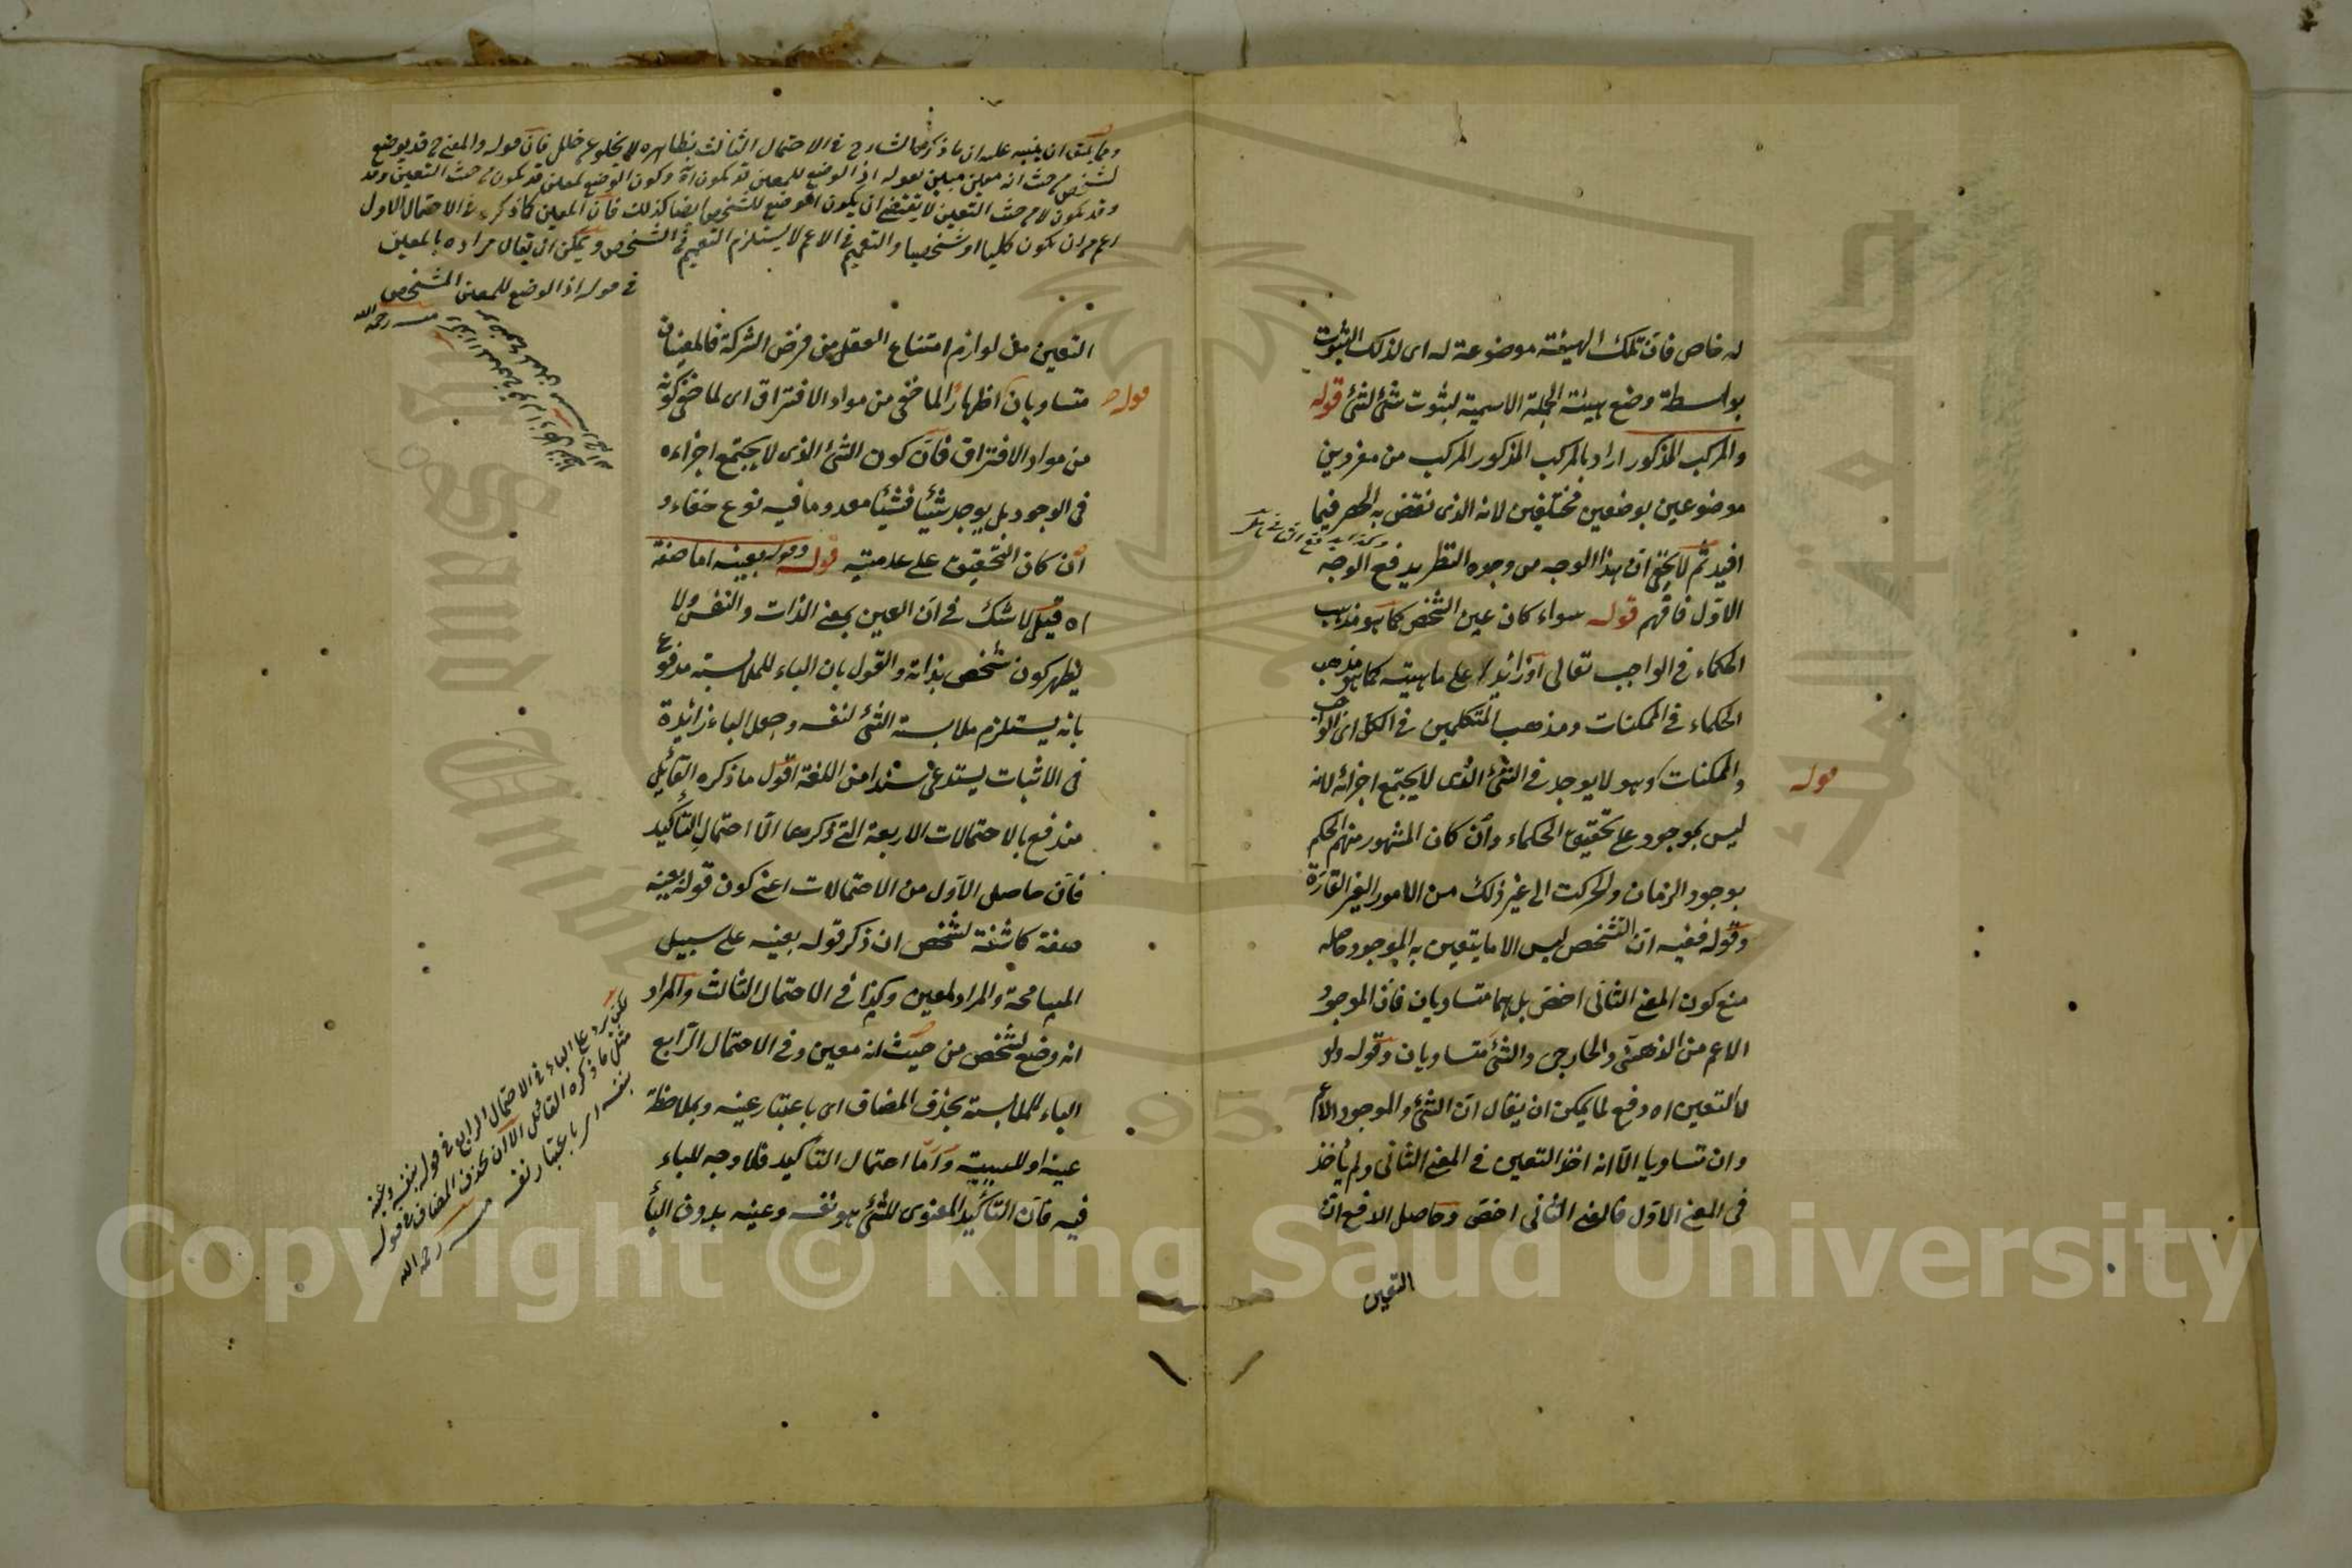 له خاص فان تلك الهيئة موضوعة له اى لذلك الثبوت
بواسطة وضع هيئة الجملة الاسمية لثبوت شئ لشئ قوله
والمركب المذكور اراد بالمركب المذكور المركب من مفردين
موضوعين بوضعين مختلفين لانه الذى نقض به الحصر فيما
افيد ثم لا يخفى ان هذا الوجه من وجوه النظر يدفع الوجه
الاول فافهم قوله سواء كان عين الشخص كما هو مذهب
الحكماء فى الواجب تعالى او زائدا على ماهيته كما هو مذهب
الحكماء فى الممكنات ومذهب المتكلمين فى الكل اى الواجب
والممكنات
قوله
وهو لا يوجد فى الشئ الذى لا يجتمع اجزائه لانه
ليس بموجود على تحقيق الحكماء وان كان المشهور منهم الحكم
بوجود الزمان والحركت الى غير ذلك من الامور الغير القارة
وقوله ففيه ان التشخص ليس الا ما يتعين به الموجود حاصله
منع كون المعنى الثانى اخص بل هما متساويان فان الموجود
الاعم من الذهنى والخارجى والشئ متساويان وقوله ولو
لا التعين اه دفع لما يمكن ان يقال ان الشئ والموجود الاعم
وان تساويا الا انه اخذ التعين فى المعنى الثانى ولم يأخذ
فى المعنى الاول فالمعنى الثانى اخص وحاصل الدفع ان
التعين
ان ينبه عليه ان ما ذكره الشارح فى الاحتمال الثالث بظاهره لا يخلو عن خلل فان قوله والمعنى قد يوضع
لشخص من حيث انه معين بقوله اذ الوضع للمعين قد يكون اه وكون الوضع لمعين قد يكون من حيث التعين وقد
وقد يكون لا من حيث التعين لا يقتضى ان يكون الوضع للشخص ايضا كذلك فان المعين كما ذكره فى الاحتمال الاول
اعم من ان يكون كليا او شخصيا والتعميم فى الاعم لا يستلزم التعميم فى الشخص ويمكن ان يقال مراده بالمعين
فى قوله اذ الوضع للمعين المشخص
منه رحمه الله
التعين من لوازم امتناع العقل من فرض الشركة فالمعنيان
متساويان
قوله
اظهارا لما خفى من مواد الافتراق اى لما خفى كونه
من مواد الافتراق فان كون الشئ الذى لا يجتمع اجزاءه
فى الوجود بل يوجد شيئا فشيئا معدوما فيه نوع خفاء و
ان كان التحقيق على عدميته قوله وقوله بعينه اما صفة
اه قيل لا شك فى ان العين بمعنى الذات والنفس ولا
يظهر كون شخص بذاته والقول بان الباء للملابسة مدفوع
بانه يستلزم ملابسة الشئ لنفسه وجعل الباء زائدة
فى الاثبات يستدعى سندا من اللغة اقول ما ذكره القائل
مندفع بالاحتمالات الاربعة التى ذكرها الا احتمال التأكيد
فان حاصل الاول من الاحتمالات اعنى كون قوله بعينه
صفة كاشفة لشخص ان ذكر قوله بعينه على سبيل
المسامحة والمراد لمعين وكذا فى الاحتمال الثالث والمراد
انه وضع لشخص من حيث انه معين وفى الاحتمال الرابع
الباء للملابسة بحذف المضاف اى باعتبار عينه وبملاحظة
عينه او للسببية واما احتمال التأكيد فلا وجه للباء
فيه فان التأكيد المعنوى للشئ هو نفسه وعينه بدون الباء
لكن يرد على الباء فى الاحتمال الرابع فى قوله بنفسه وعينه
مثل ما ذكره القائل الا ان يحذف المضاف فى قوله
بنفسه اى باعتبار نفسه منه رحمه الله
Copyright © King Saud University